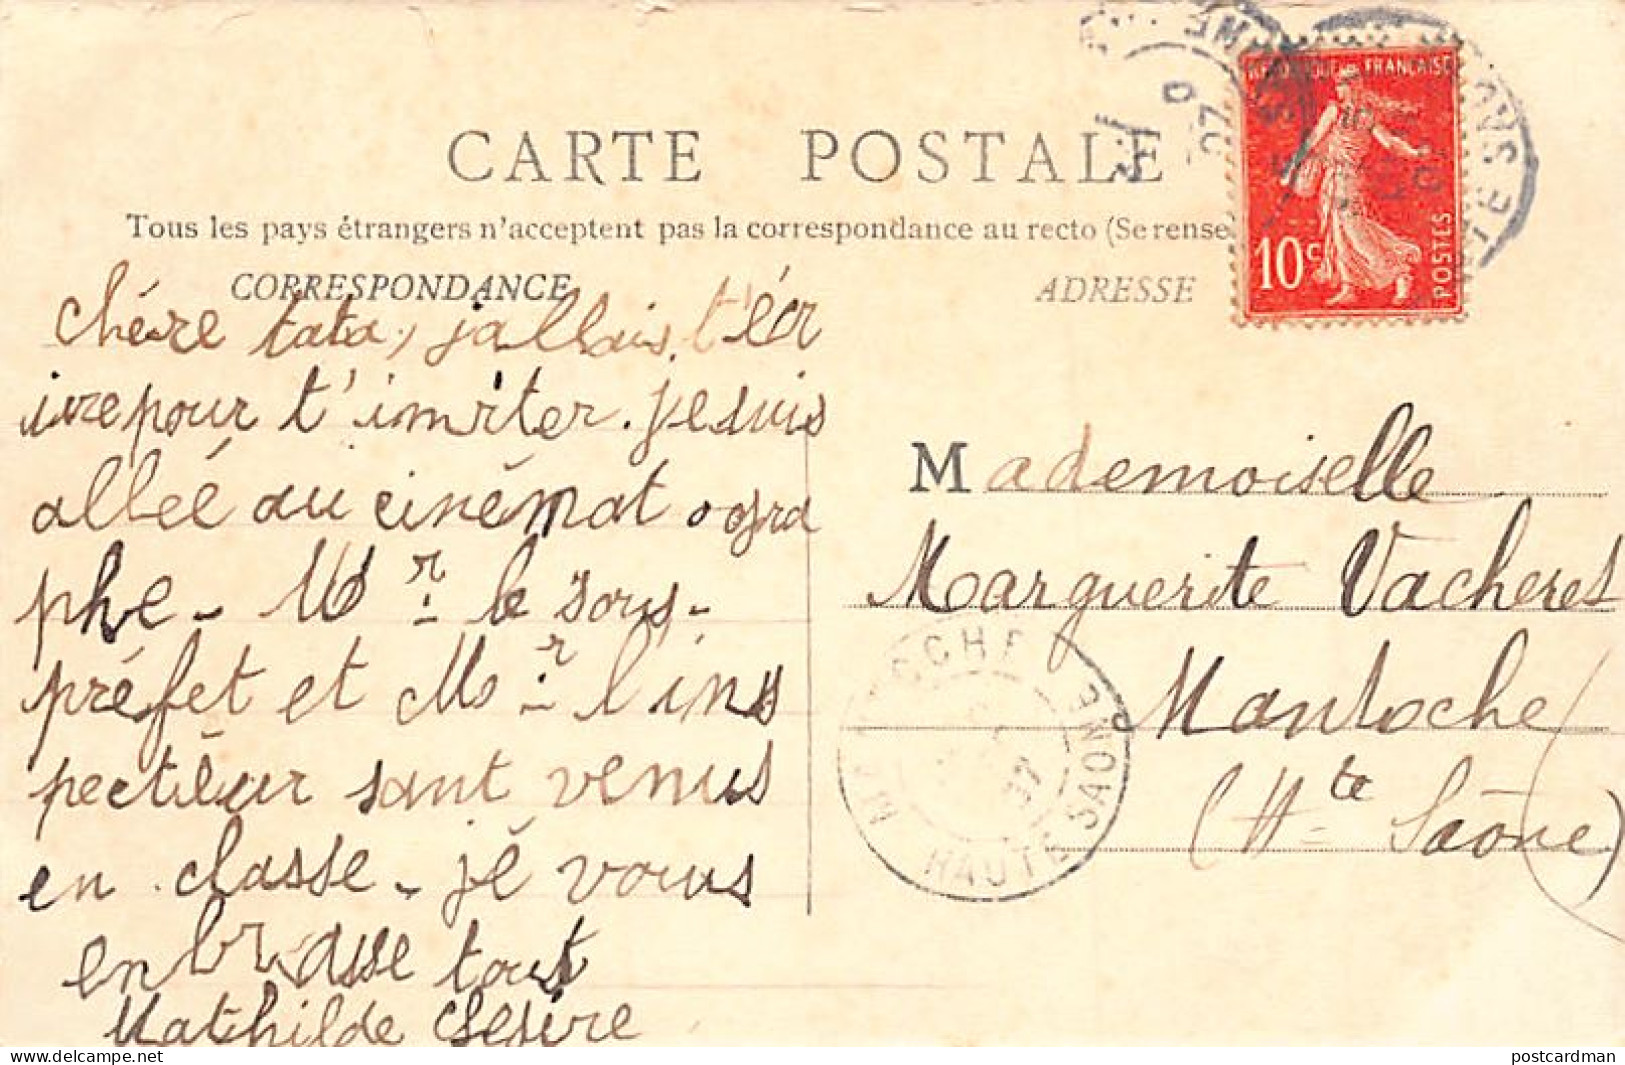 CARTE POSTALE
Tous les pays étrangers n'acceptent pas la correspondance au recto (Se rense
CORRESPONDANCE
ADRESSE
REPUBLIQUE FRANÇAISE
10c
POSTES
chére tata, jallais t'écr
ire pour t'imiter. je suis
allée au cinémat ogra
phe - Mr le sous-
préfet et Mr l'ins
pecteur sont venus
en classe - je vous
enbrasse tout
Mathilde
Mademoiselle
Marguerite Vacheres
Mantoche
(Hte Saône)
MANTOCHE
HAUTE SAONE
07
postcardman
www.delcampe.net